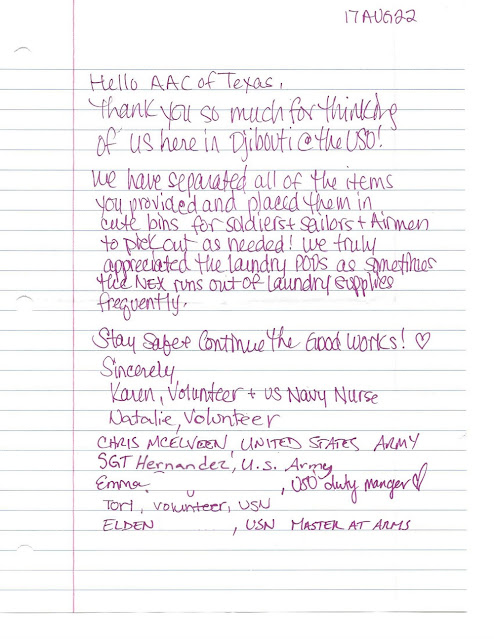 17AUG22
Hello AAC of Texas,
Thank you so much for thinking
of us here in Djibouti @ the USO!
We have separated all of the items
you provided and placed them in
cute bins for soldiers + sailors + Airmen
to pick out as needed! We truly
appreciated the laundry PODs as sometimes
the NEX runs out of laundry supplies
frequently.
Stay Safe + Continue the Good Works! ♡
Sincerely,
Karen, Volunteer + US Navy Nurse
Natalie, Volunteer
CHRIS MCELVEEN, UNITED STATES ARMY
SGT Hernandez, U.S. Army
Emma , USO duty manger ♡
Tori, Volunteer, USN
ELDEN , USN MASTER AT ARMS